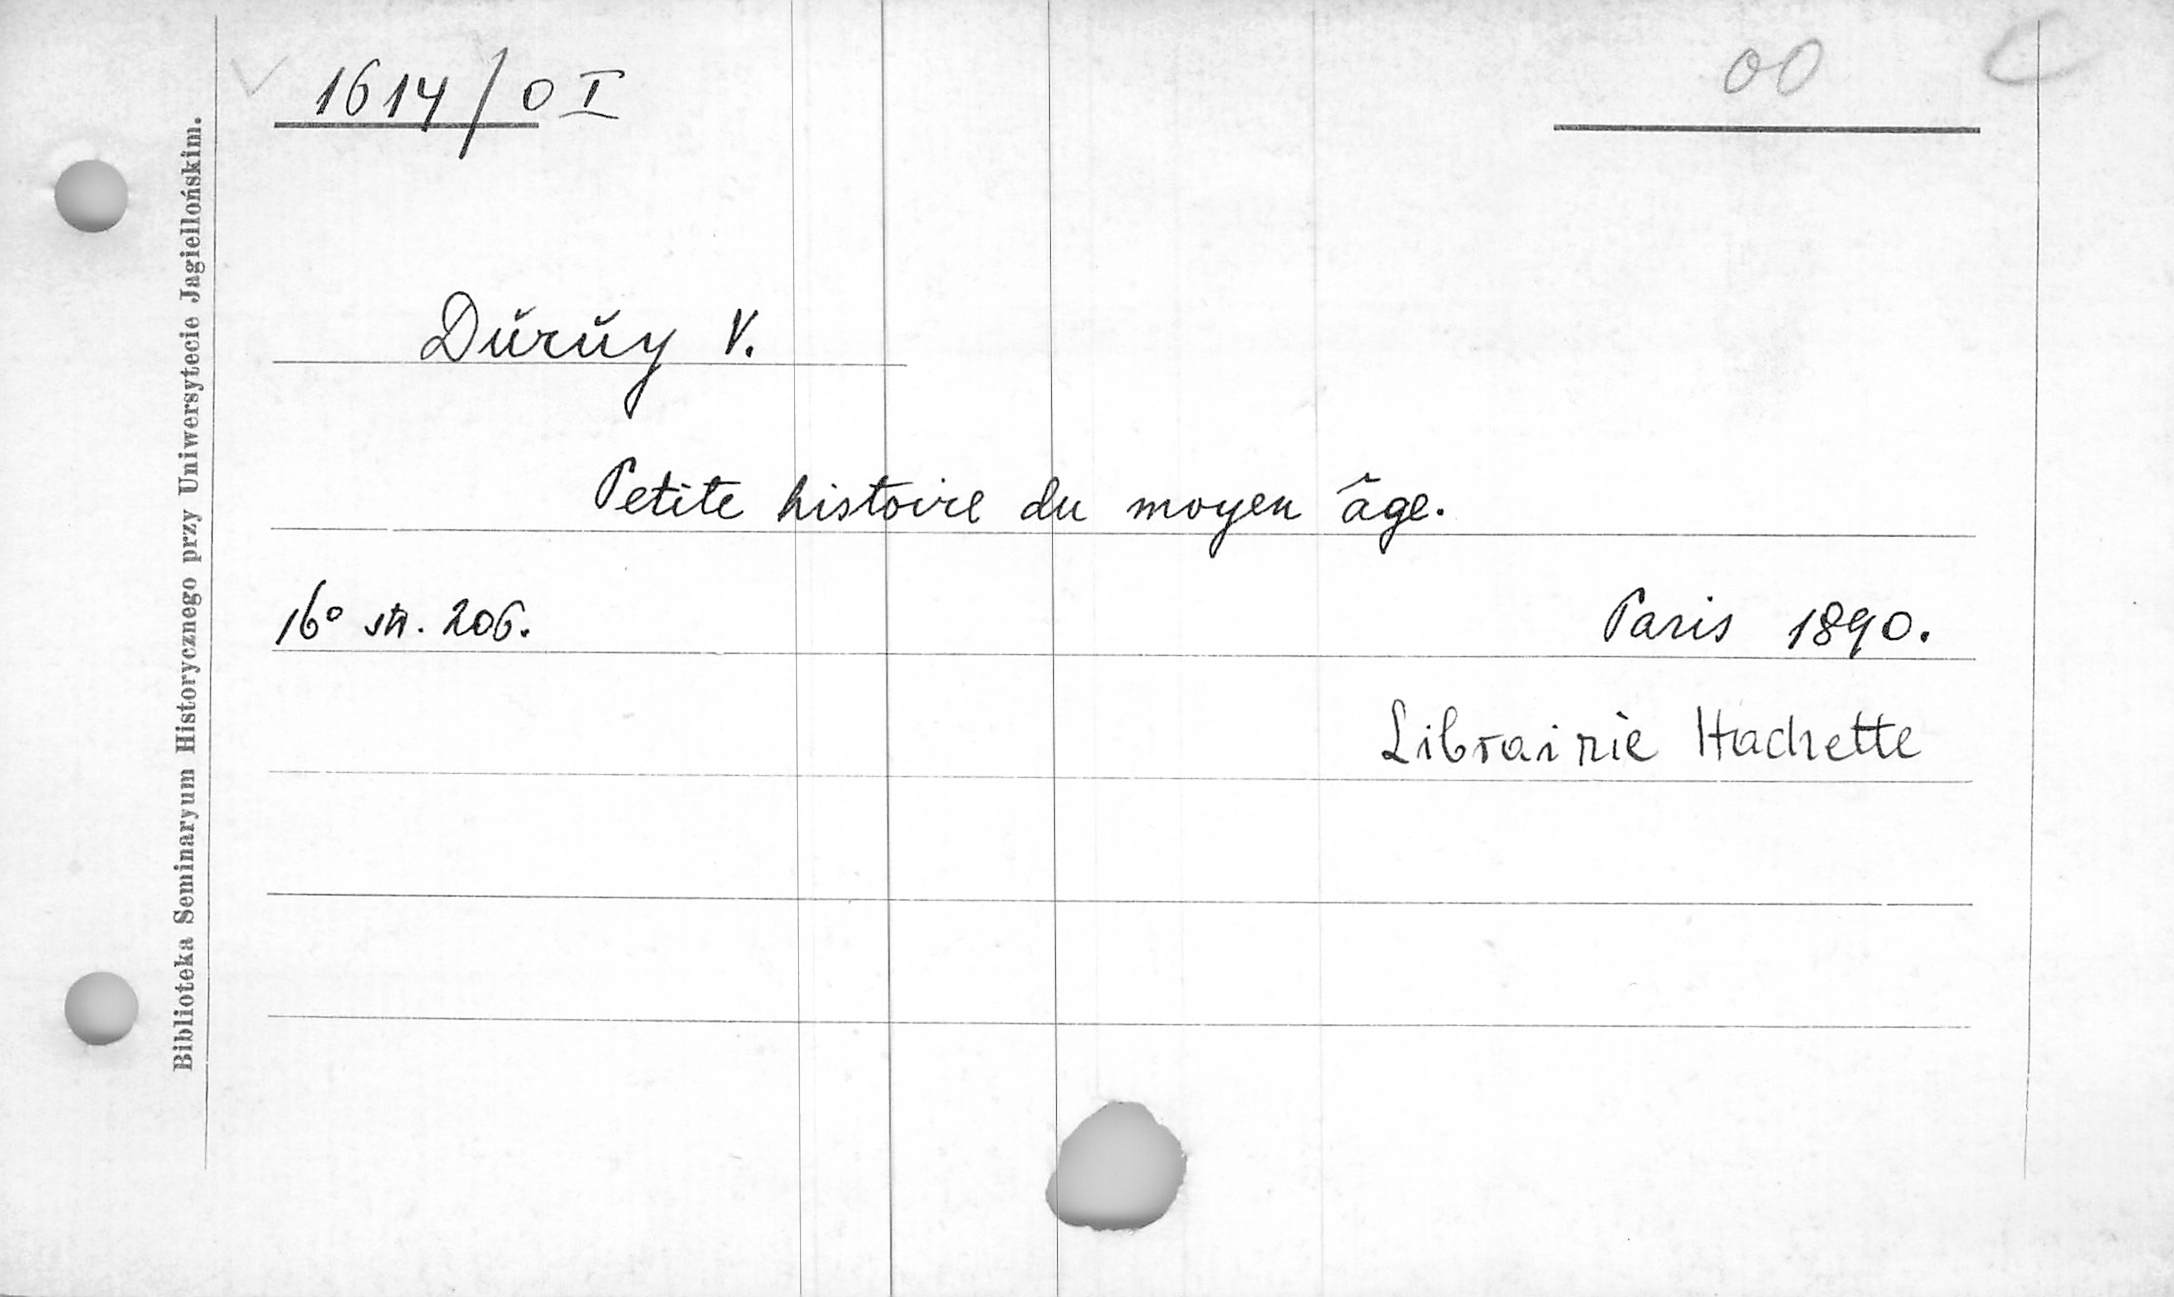 1614/0 I
00 C
Dŭrŭy V.
Petite histoire du moyen âge.
16° str. 206.
Paris 1890.
Librairie Hachette
Biblioteka Seminaryum Historycznego przy Uniwersytecie Jagiellońskim.